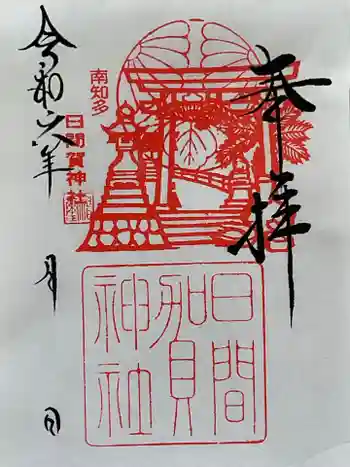 奉拝
南知多
日間賀神社
日間
加貝
神社
令和六年
月
日